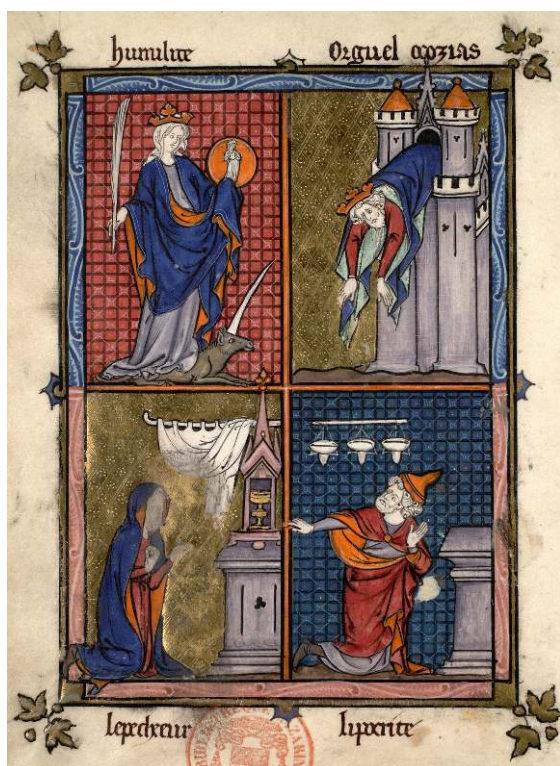 humilite Orguel ocozias
lepecheeur lipocrite